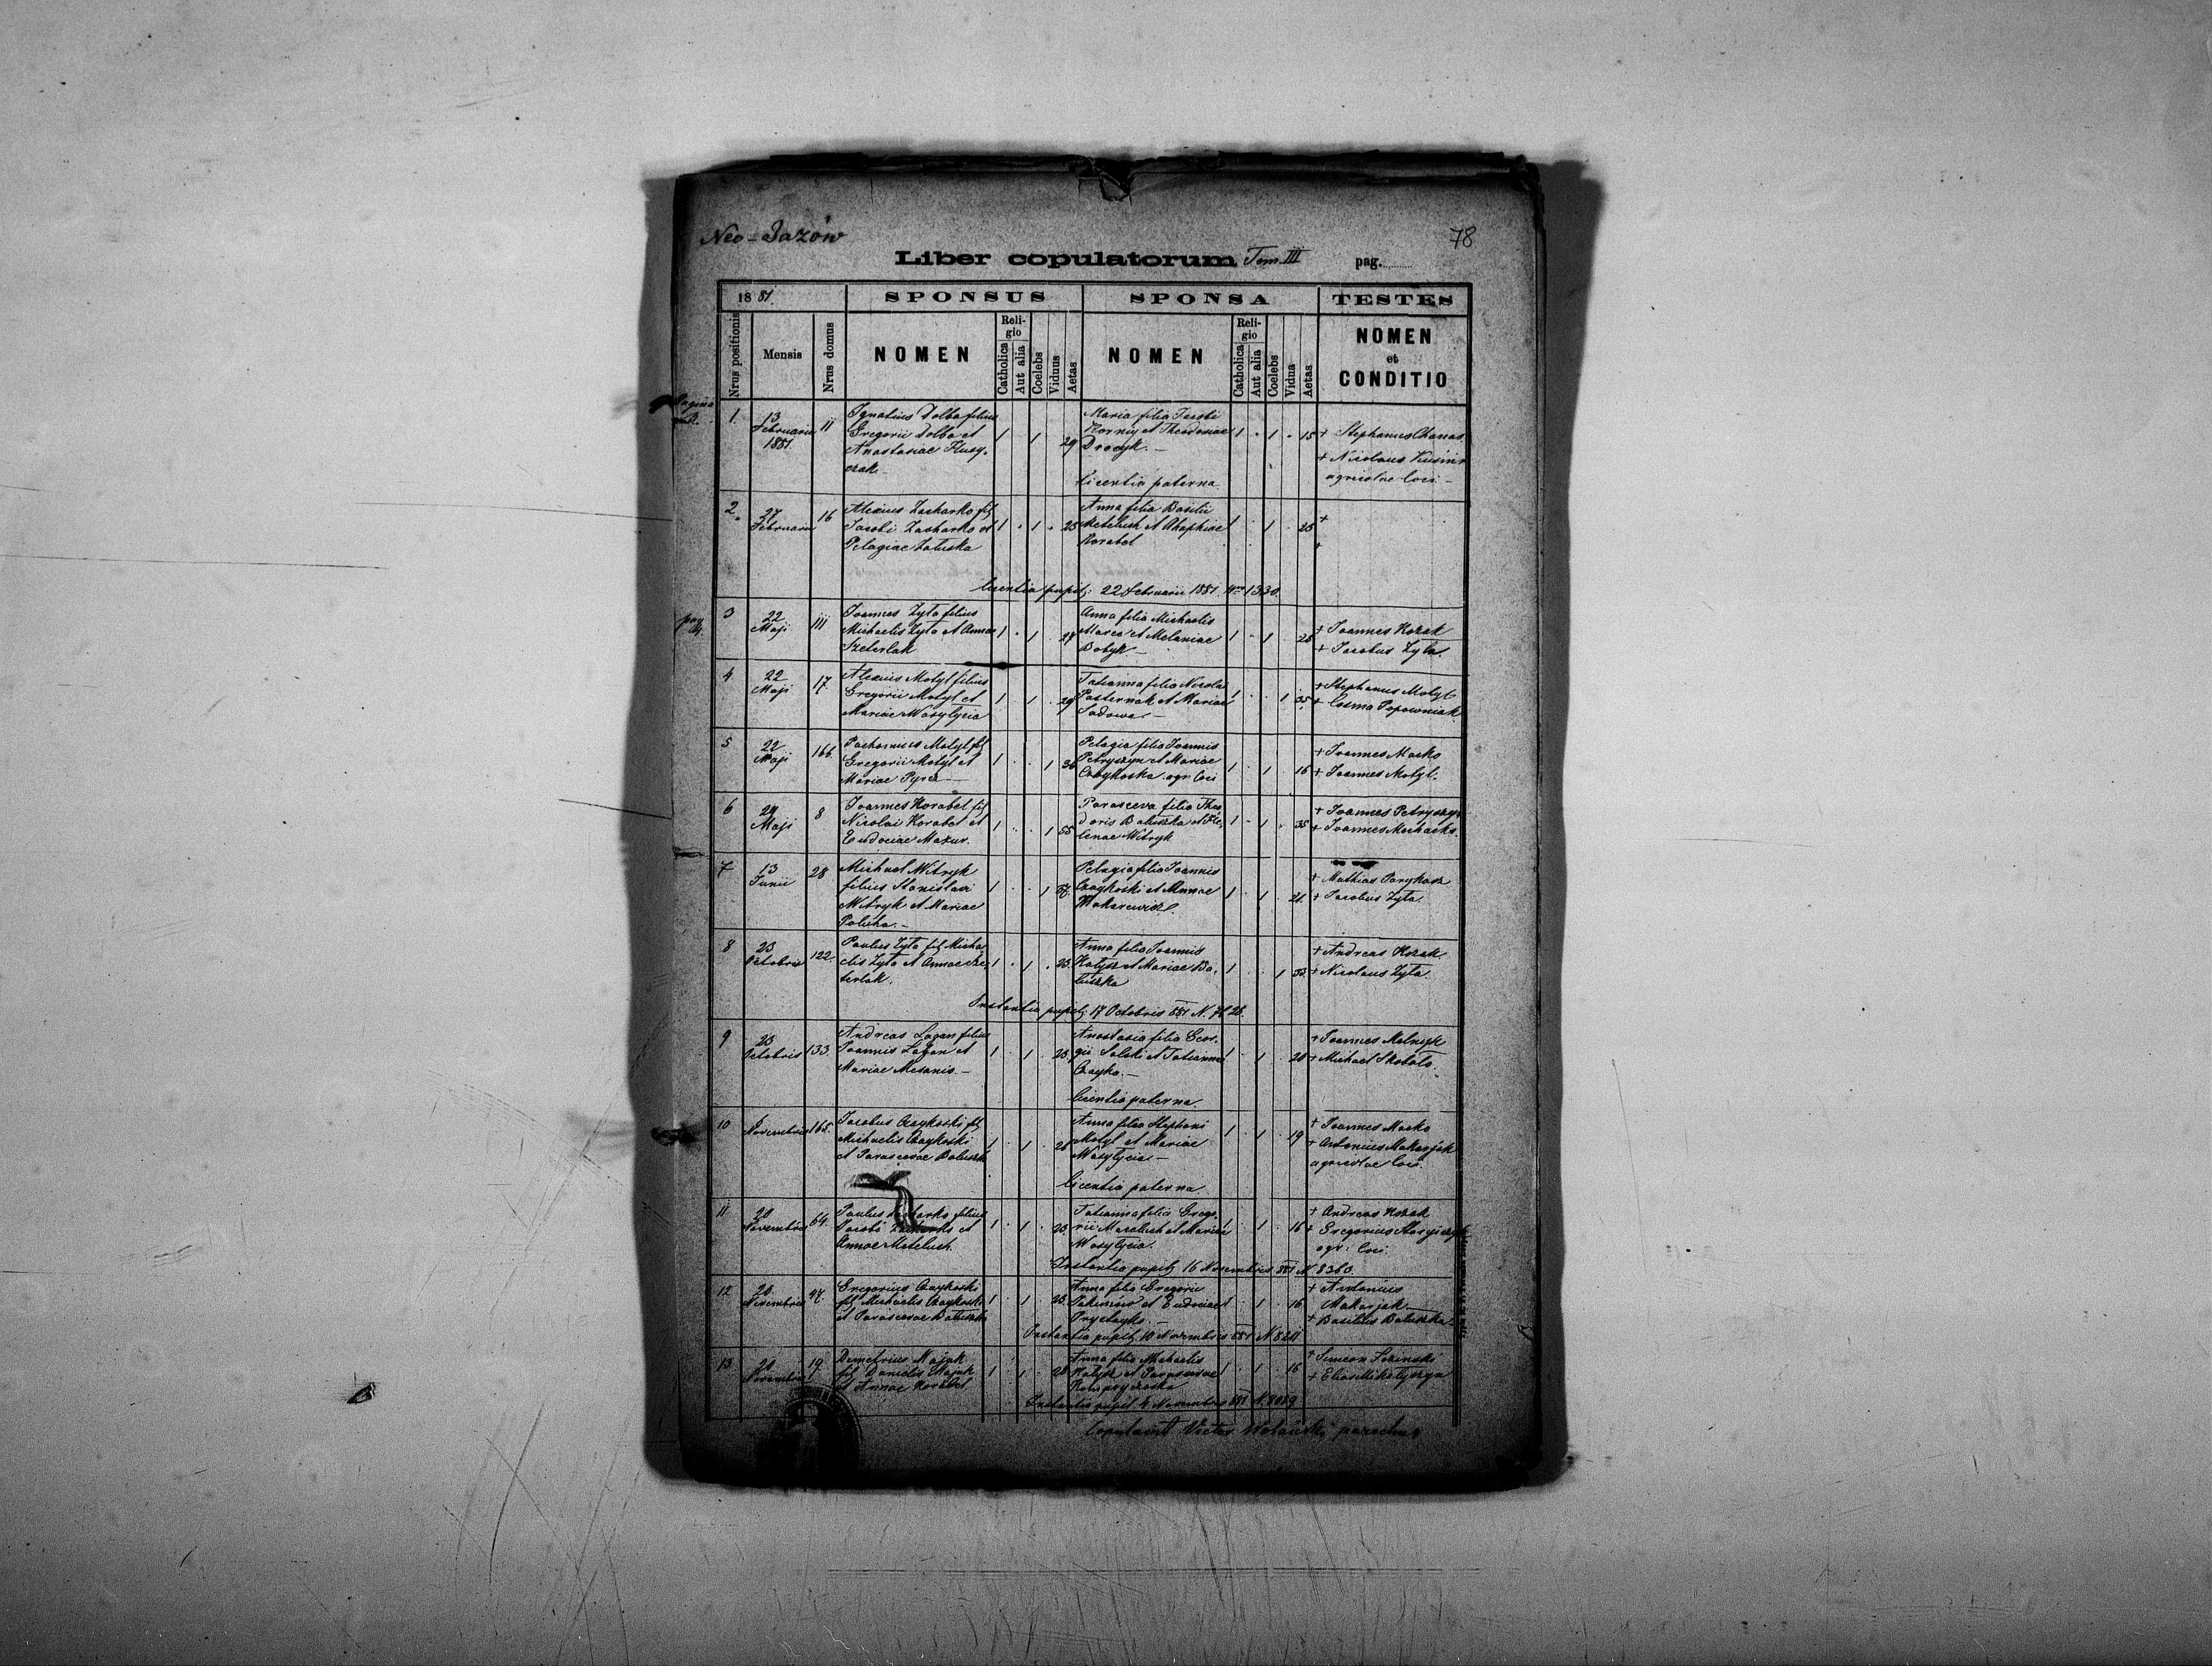 Neo-Jazów
78
Liber copulatorum Tom. III pag.
1881.
SPONSUS
SPONSA
TESTES
Nrus positionis
Mensis
Nrus domus
NOMEN
Religio
Catholica
Aut alia
Coelebs
Viduus
Aetas
NOMEN
Religio
Catholica
Aut alia
Coelebs
Vidua
Aetas
NOMEN
et
CONDITIO
1. 13 Februarii 1881. 11
Ignatius Dolba filius
Gregorii Dolba et
Anastasiae
1 1 29
Maria filia Jacobi
Korniy et Theodosiae
Drozyk. —
Licentia paterna
1 1 18
+ Stephanus Chanas
+ Nicolaus
agricolae loci —
2. 27 Februarii 16
Alexius Zacharko fil
Jacobi Zacharko et
Pelagiae
1 1 25
Anna filia Basilii
Metelush et Ahaphiae
Korabel
1 1 25
+
+
licentia pupil. 22 Februarii 1881. Nro 1330.
3 22 Maji 111
Joannes Zyła filius
Michaelis Zyła et Annae
1 1 27
Anna filia Michaelis
et Melaniae
Bobyk —
1 1 28
+ Joannes Kozak
+ Jacobus Zyła.
4 22 Maji 17.
Alexius Motyl filius
Gregorii Motyl et
Mariae Wasylycia
1 1 29
Tatianna filia Nicolai
Pasternak et Mariae
Sadowa —
1 1 35
+ Stephanus Motyl
+ Cosma Popowniak
5 22 Maji 166.
Pachomius Motyl fil
Gregorii Motyl et
Mariae Pyrcz —
1 1 36
Pelagia filia Joannis
Petryszyn et Mariae
Czaykoska agr. loci
1 1 16
+ Joannes Masko
+ Joannes Motyl.
6 29 Maji 8
Joannes Korabel fil
Nicolai Korabel et
Eudociae Mazur.
1 1 55
Parasceva filia Theo
doris Baluszka et He
lenae Witryk
1 1 35
+ Joannes Petryszyn
+ Joannes
7 13 Junii 28
Michael Witryk
filius Stanislai
Witryk et Mariae
Poluha. —
1 1 57.
Pelagia filia Joannis
Czaykoski et Annae
Makarewicz.
1 1 21.
+ Mathias
+ Jacobus Zyła.
8 23 Octobris 122.
Paulus Zyła fil Micha
elis Zyła et Annae
1 1 23.
Anna filia Joannis
Kałysz et Mariae Ba
luszka
1 1 33.
+ Andreas Kozak
+ Nicolaus Zyła.
Instantia pupil. 17 Octobris 881 N.
9 23 Octobris 133.
Andreas Łagan filius
Joannis Łagan et
Mariae —
1 1 23.
Anastasia filia Geor
gii Solski et Tatiannae
Czayko. —
licentia paterna.
1 1 20
+ Joannes Melnyk
+ Michael
10 6 Novembris 165.
Jacobus Czaykoski fil
Michaelis Czaykoski
et Parascevae Baluszka
1 1 26
Anna filia Stephani
Motyl et Mariae
Wasylycia —
licentia paterna.
1 1 19
+ Joannes Masko
+ Antonius Makarjak
agricolae loci.
11 20 Novembris 64.
Paulus Zacharko filius
Jacobi Zacharko et
Annae Metelush.
1 1 23.
Tatianna filia Grego
rii et Mariae
Wasylycia.
1 1 16
+ Andreas Kozak
+ Gregorius
agr. loci.
Instantia pupil. 16 Novembris 881 N 8363.
12 20 Novembris 47.
Gregorius Czaykoski
fil Michaelis Czaykoski
et Parascevae Baluszka
1 1 23.
Anna filia Gregorii
et Eudociae
1 1 16
+ Antonius
Makarjak —
+ Basilius Baluszka
Instantia pupil. 10 Novembris 881 N
13 20 Novembris 19.
Demetrius Majak
fil Danielis Majak
et Annae Korabel
1 1 28
Anna filia Michaelis
Kałysz et Parascevae
1 1 16
+ Simeon
+ Elias Mikołyszyn
Instantia pupil. 4 Novembris 881 N.
Copulavit Victor parochus